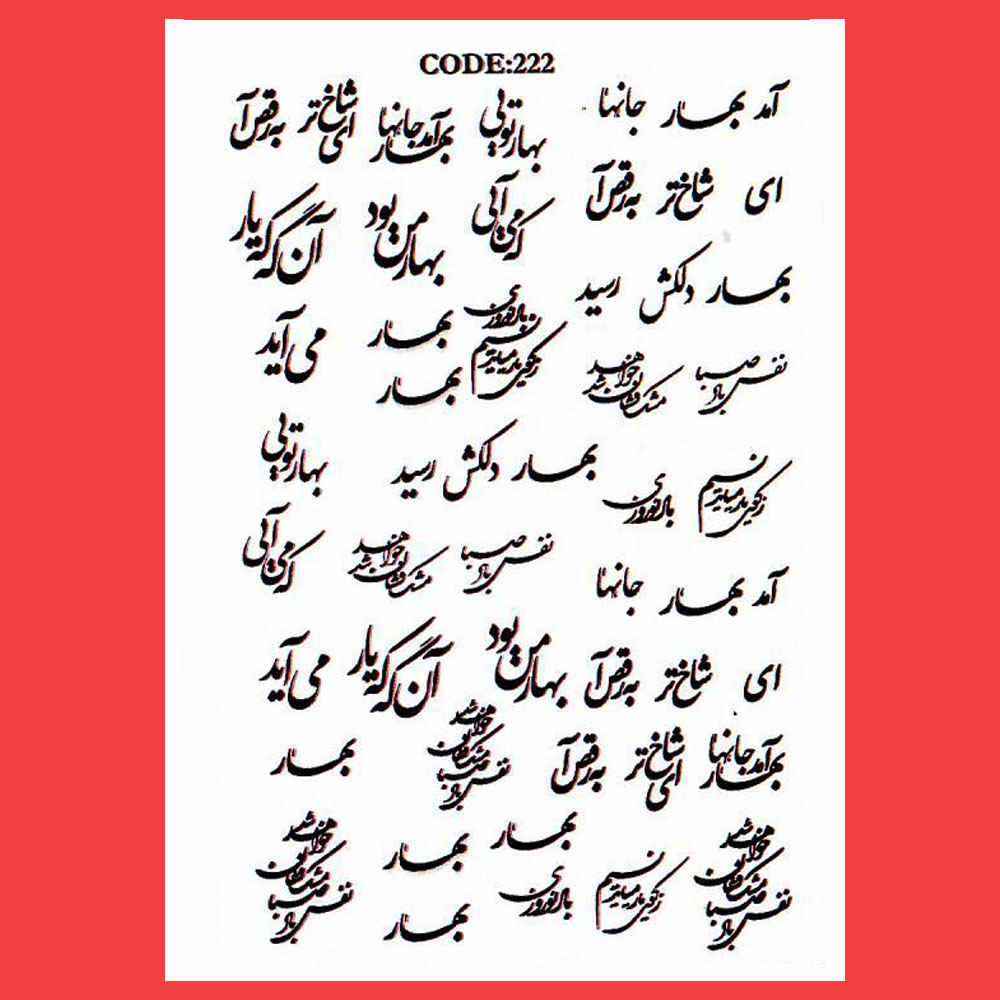 CODE:222
آمد بهار جانها
بهار تویی
آمد بهار جانها
ای شاخ تر
به رقص آ
ای شاخ تر به رقص آ
که می آیی
بهار من بود
آن گه که یار
بهار دلکش رسید
باد نوروزی
نسیم
ز کوی یار میآید
بهار
می آید
نفس باد صبا
مشک فشان خواهد شد
بهار
تویی بهار
بهار دلکش رسید
نسیم
ز کوی یار میآید
باد نوروزی
که می آیی
نفس باد صبا
مشک فشان خواهد شد
آمد بهار جانها
بهار من بود
آن گه که یار
می آید
ای شاخ تر به رقص آ
نفس باد صبا
مشک فشان خواهد شد
آمد بهار جانها
ای شاخ تر
به رقص آ
بهار
بهار
بهار
نفس باد صبا
مشک فشان خواهد شد
نسیم
ز کوی یار میآید
باد نوروزی
نفس باد صبا
مشک فشان خواهد شد
بهار